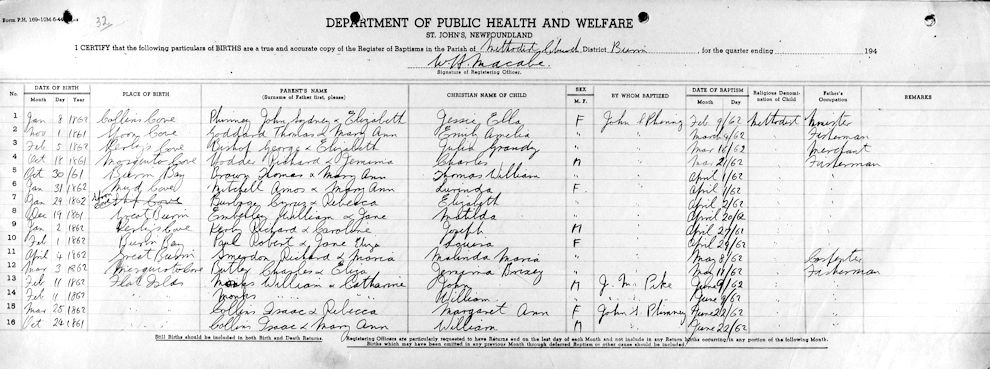 Form P.H. 169-10M 6-44
32
DEPARTMENT OF PUBLIC HEALTH AND WELFARE
ST. JOHN'S, NEWFOUNDLAND
I CERTIFY that the following particulars of BIRTHS are a true and accurate copy of the Register of Baptisms in the Parish of Methodist Church District Burin, for the quarter ending 194
W H Macabe.
Signature of Registering Officer.
No. DATE OF BIRTH Month Day Year PLACE OF BIRTH PARENT'S NAME (Surname of Father first, please) CHRISTIAN NAME OF CHILD SEX M. F. BY WHOM BAPTIZED DATE OF BAPTISM Month Day Religious Denomination of Child Father's Occupation REMARKS
1 Jan 8 1862 Collins Cove Phinney John Sydney & Elizabeth Jessie Ella F John S Phinney Feb 9/62 Methodist Minister
2 Nov 1 1861 Cove Goddard Thomas & Mary Ann Emily Amelia " " March /62 " Fisherman
3 Feb 5 1862 Cove Bishop George & Elizabeth Julia Grandy " " Mar 16/62 " Merchant
4 Oct 18 1861 Mosquito Cove Vodder Richard & Jemima Charles M " Mar 21/62 " Fisherman
5 Oct 30 /61 Burin Bay Brown Thomas & Mary Ann Thomas William " " April 1/62 " "
6 Jan 31 1862 Mud Cove Mitchell Amos & Mary Ann Lucinda F " April 1/62 " "
7 Jan 29 1862 Cove & Rebecca Elizabeth " " April 2/62 " "
8 Dec 19 1861 Great Burin Emberley William & Jane Matilda " " April 20/62 " "
9 Jan 2 1862 Cove Richard & Caroline Joseph M " April 27/62 " "
10 Feb 1 1862 Burin Bay Paul Robert & Jane Eliza F " April 29/62 " "
11 April 4 1862 Great Burin Richard & Maria Malinda Maria " " May 8/62 " Carpenter
12 Mar 3 1862 Mosquito Cove Butler Charles & Eliza Jemima " " May 11/62 " Fisherman
13 Feb 11 1862 Flat Islds Monks William & Catharine John M J. M. Pike June 9/62 " "
14 Feb 11 1862 " " Monks " " William " " June 9/62 " "
15 Mar 25 1862 " " Collins Isaac & Rebecca Margaret Ann F John S. Phinney June 22/62 " "
16 Oct 24 1861 " " Collins Isaac & Mary Ann William M " June 22/62 " "
Still Births should be included in both Birth and Death Returns.
Registering Officers are particularly requested to have Returns end on the last day of each Month and not include in any Return Births occurring in any portion of the following Month.
Births which may have been omitted in any previous Month through deferred Baptism or other cause should be included.